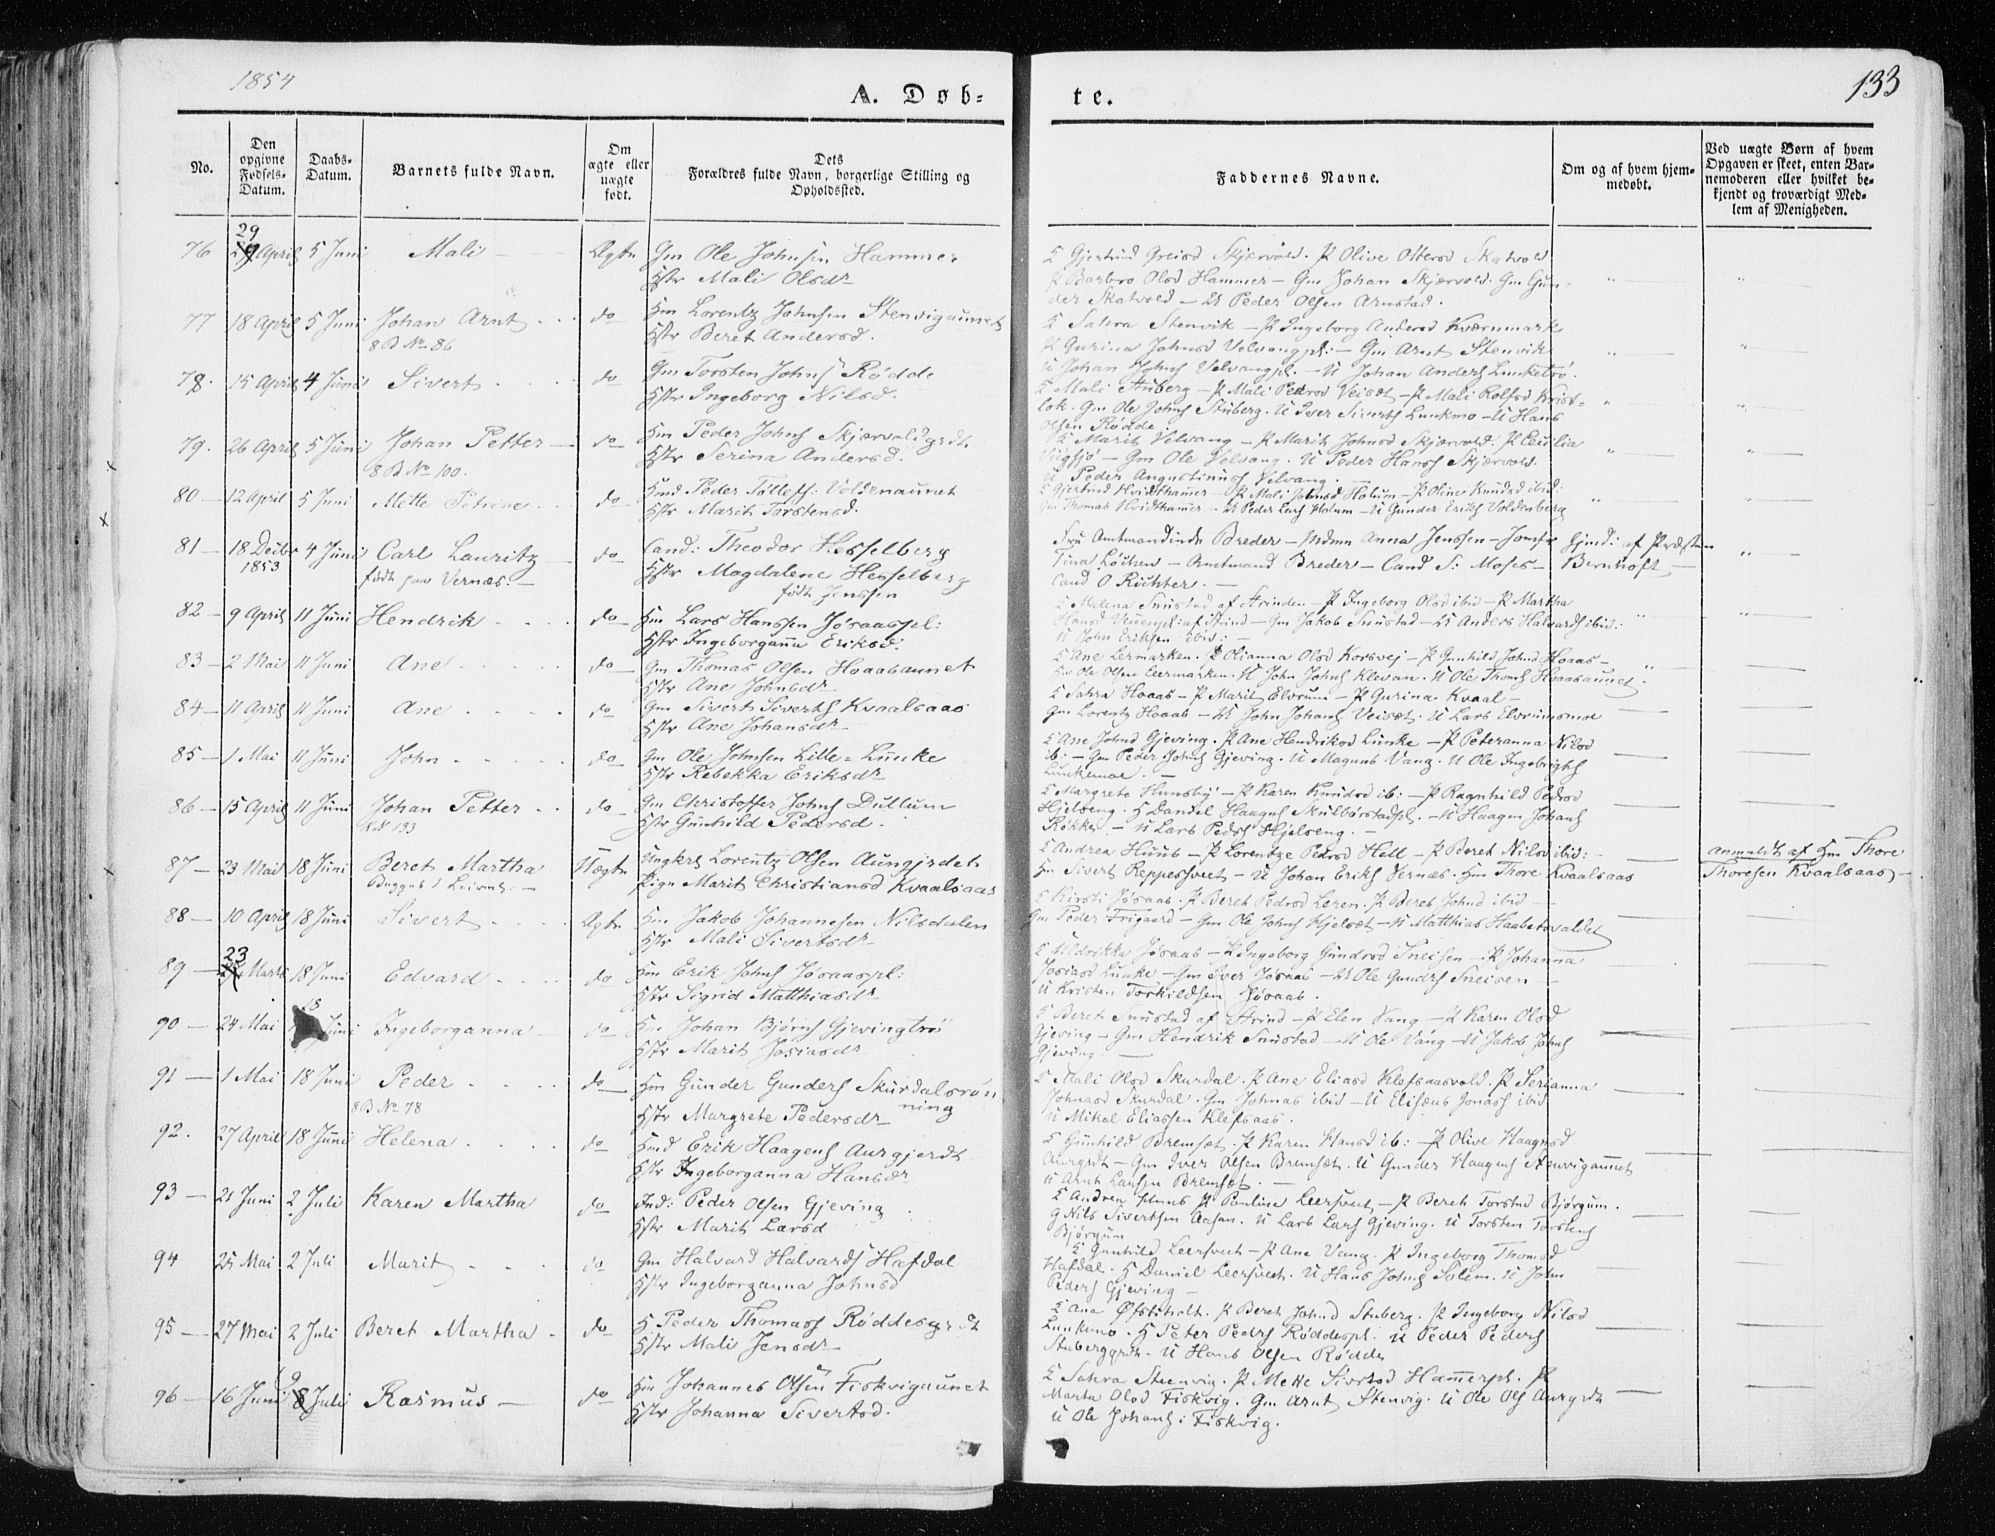 1854
A. Døb-
te.
133
No.
Den opgivne Fødsels-Datum.
Daabs-Datum.
Barnets fulde Navn.
Om ægte eller uægte født.
Dets Forældres fulde Navn, borgerlige Stilling og Opholdssted.
Faddernes Navne.
Om og af hvem hjem-medøbt.
Ved uægte Børn af hvem Opgaven er skeet, enten Bar-nemoderen eller hvilket be-kjendt og troværdigt Med-lem af Menigheden.
76 29 April 5 Juni Mali Ægte Gm Ole Johnsen Hammer
Hstr Mali Olsdr
77 18 April 5 Juni Johan Arnt do Hm Lorentz Johnsen Stenvigaunet
8 B No 86 Hstr Beret Andersd.
78. 15 April 4 Juni Sivert do Gm Torsten Johns Rødde
Hstr Ingeborg Nilsd.
79. 26 April 5 Juni Johan Petter do Hm Peder Johns Skjærvoldgrdt
8 B No 100. Hstr Serina Andersd.
80 12 April 5 Juni Mette Petrine do Hmd Peder Tollefs: Voldenaunet
Hstr Marit Torstensd.
81 18 Decbr 1853 4 Juni Carl Lauritz do Cand: Theodor Hesselberg
født paa Vernæs. Hstr Magdalene Hesselberg
født Jenssen
82 9 April 11 Juni Hendrik do Hm Lars Hanssen Jøraaspl:
Hstr Ingeborganna Eriksd:
83 2 Mai 11 Juni Ane do Gm Thomas Olsen Hoaasaunet
Hstr Ane Johnsdr
84 11 April 11 Juni Ane do Gm Sivert Siverts Kvaalsaas
Hstr Ane Johansdr
85 1 Mai 11 Juni John do Gm Ole Johnsen Lille-Lunke
Hstr Rebekka Eriksdr
86 15 April 11 Juni Johan Petter do Gm Christoffer Johns Dullum
Hstr Gunhild Pedersd.
87 23 Mai 18 Juni Beret Martha Uægte Ungkrl Lorentz Olsen Aungjrdet
Pige Marit Christiansd Kvaalsaas
88 10 April 18 Juni Sivert Ægte Hm Jakob Johannesen Nilsdalen
Hstr Mali Sivertsdr
89 23 Marts 18 Juni Edvard do Hm Erik Johns Jøraaspl:
Hstr Sigrid Matthiasdr
90 24 Mai 18 Juni Ingeborganna do Hm Johan Bjørns Gjevingtrø
Hstr Marit Josiasdr
91 1 Mai 18 Juni Peder do Hm Gunder Gunders Skurdalsrønning
8 B No 78 Hstr Margrete Pedersdr
92. 27 April 18 Juni Helena do Hmd Erik Haagens Aurgjerdt
Hstr Ingeborganna Hansdr
93 21 Juni 2 Juli Karen Martha do Ind: Peder Olsen Gjeving
Hstr Marit Larsd
94 25 Mai 2 Juli Marit do Gm Halvard Halvards Hafdal
Hstr Ingeborganna Johnsd
95 27 Mai 2 Juli Beret Martha do H Peder Thomass Røddesgrdt
Hstr Mali Jensdr
96 16 Juni 9 Juli Rasmus do Hm Johannes Olsen Fiskvigaunet
Hstr Johanna Sivertsd.
K Gjertrud Skjærvold. P Olive Skatvold
P Barbro Olsd Hammer - Gm Johan Skjærvold. Gm Gun-
der Skatvold - U Peder Olsen Arnstad.
K Sahra Stenvik - P Ingeborg Andersd Kværnmark
P Gurina Johnsd Velvangpl: - Gm Arnt Stenvik
U Johan Johns Velvangpl. - U Johan Anders Lunketrø.
K Mali Stuberg - P Mali Pedersd Veisæt - P Mali
Gm Ole Johns Stuberg. U Iver Siverts Lunkmo - U Hans
Olsen Rødde.
K Marit Velvang - P Marit Johnsd Skjærvold. P Cecilia
Gm Ole Velvang. U Peder Hans Skjærvold.
U Peder Augustinus Velvang.
K Gjertrud Hvidthamer - P Mali Johnsd Holum - P Oline Knudsd ibid:
Gm Thomas Hvidthamer - U Peder Lars Holum - U Gunder Eriks Voldenberg
Fru Amtmandinde Breder - Mdme Anna Jenssen - Jomfr
Tina Løchen - Amtmand Breder - Cand S: Moses -
Cand O Richter. -
Hjmd: af Præsten
Bernhoft
K Malena Smistad af Strinden - P Ingeborg Olsd ibid - P Martha
Gm Jakob Smistad - U Anders Halvards ibid:
U John Eriksen ibid: -
K Ane Lermarken. P Olianna Olsd Korsvej - P Gunhild Johnd Hoaas -
Gm Ole Olsen Leermarken. U John Johns Klevan. U Ole Thoms Hoaasaunet.
K Sahra Hoaas - P Marit Elvrum - P Gurina Kvaal -
Gm Lorentz Hoaas - U John Johans Veisæt. U Lars Elvrumsmoe
K Ane Johnd Gjeving. P Ane Hendriksd Lunke - P Peteranna Nilsd
ib: - Gm Peder Johns Gjeving. U Magnus Vang. U Ole Ingebrigts
Lunkemoe. -
K Margrete Hunsby - P Karen Knudsd ib: - P Ragnhild Pedersd
Hjelseng. H Daniel Haagens Skulbørstadpl. - U Haagen Johans
Røkke. - U Lars Peders Hjelseng. -
K Andrea Huus - P Lorentze Pedersd Hell - P Beret Nilsd ibid:
Hm Sivert Reppesveet - U Johan Eriks Vernæs. Hm Thore Kvaalsaas
anmeldt af Hm Thore
Thoresen Kvaalsaas -
K Kirsti Jøraas. P Beret Pedersd Leren. P Beret Johnd ibid -
Gm Peder Frigaard - Gm Ole Johns Hjelsæt - U Matthias Haabetsvaldet
K Uldrikke Jøraas - P Ingeborg Gundersd Sneisen - P Johanna
Josiasd Lunke - Gm Iver Jøraas - U Ole Gunders Sneisen -
U Kristen Torkildsen Jøraas.
K Beret Smistad af Strind - P Elen Vang - P Karen Olsd
Gjeving - Gm Hendrik Smistad - U Ole Vang - U Jakob Johns
Gjeving. -
K Mali Olsd Skurdal. P Ane Eliasd Klefsaasvold. P Serianna
Johnasd Skurdal. Gm Johnas ibid - U Elisæus Jonass ibid
U Mikal Eliassen Klefsaas.
K Gunhild Bremsæt. P Karen Hansd ib: - P Olive Haagnsd
Aurgrdt - Gm Iver Olsen Bremsæt. U Gunder Haagens Stenvigaunet
U Arnt Larsen Bremsæt. -
K Andrea Huus P Pauline Leersveet - P Beret Torstsd Bjørgum.
G Nils Sivertsen Aasan. U Lars Lars Gjeving. U Torsten Torstens
Bjørgum
K Gunhild Leersveet - P Ane Vang. P Ingeborg Thomsd
Hafdal. H Daniel Leersveet. U Hans Johns Solem. U John
Peders Gjeving -
K Ane Øfstiholt. P Beret Johnd Stuberg. P Ingeborg Nilsd
Lunkmo. H Peter Peders Røddespl. U Peder Peders
Stuberggrdt. U Hans Olsen Rødde
K Sahra Steenvig. P Mette Sivrtsd Hamerpl. P
Marta Olsd Fiskvig. Gm Arnt Stenvig. U Ole Ols Aurgrdt
U Ole Johans: Fiskvig.